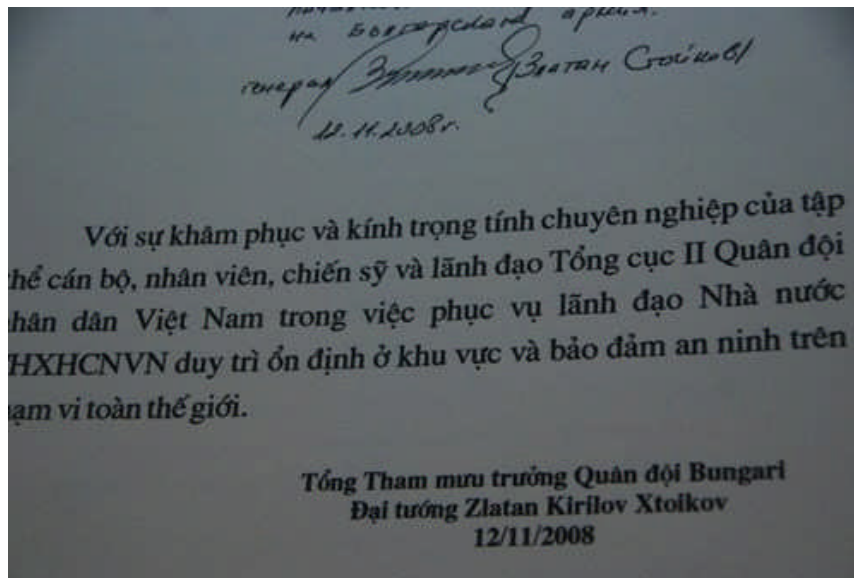 на Българската армия.
генерал Златан Стойков
12.11.2008г.
Với sự khâm phục và kính trọng tính chuyên nghiệp của tập
hể cán bộ, nhân viên, chiến sỹ và lãnh đạo Tổng cục II Quân đội
hân dân Việt Nam trong việc phục vụ lãnh đạo Nhà nước
HXHCNVN duy trì ổn định ở khu vực và bảo đảm an ninh trên
ạm vi toàn thế giới.
Tổng Tham mưu trưởng Quân đội Bungari
Đại tướng Zlatan Kirilov Xtoikov
12/11/2008